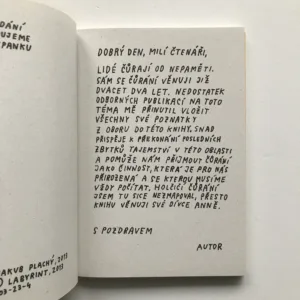 DÁNÍ
UJEME
PANKU
DOBRÝ DEN, MILÍ ČTENÁŘI,
LIDÉ ČŮRAJÍ OD NEPAMĚTI.
SÁM SE ČŮRÁNÍ VĚNUJI JIŽ
DVACET DVA LET. NEDOSTATEK
ODBORNÝCH PUBLIKACÍ NA TOTO
TÉMA MĚ PŘINUTIL VLOŽIT
VŠECHNY SVÉ POZNATKY
Z OBORU DO TÉTO KNIHY, SNAD
PŘISPĚJE K PŘEKONÁNÍ POSLEDNÍCH
ZBYTKŮ TAJEMSTVÍ V TÉTO OBLASTI
A POMŮŽE NÁM PŘIJMOUT ČŮRÁNÍ
JAKO ČINNOST, KTERÁ JE PRO NÁS
PŘIROZENÁ A SE KTEROU MUSÍME
VŽDY POČÍTAT. HOLČIČÍ ČŮRÁNÍ
JSEM TU SICE NEZMAPOVAL, PŘESTO
KNIHU VĚNUJI SVÉ DÍVCE ANNĚ.
S POZDRAVEM
AUTOR
AKUB PLACHÝ, 2013
) LABYRINT, 2013
03-23-4